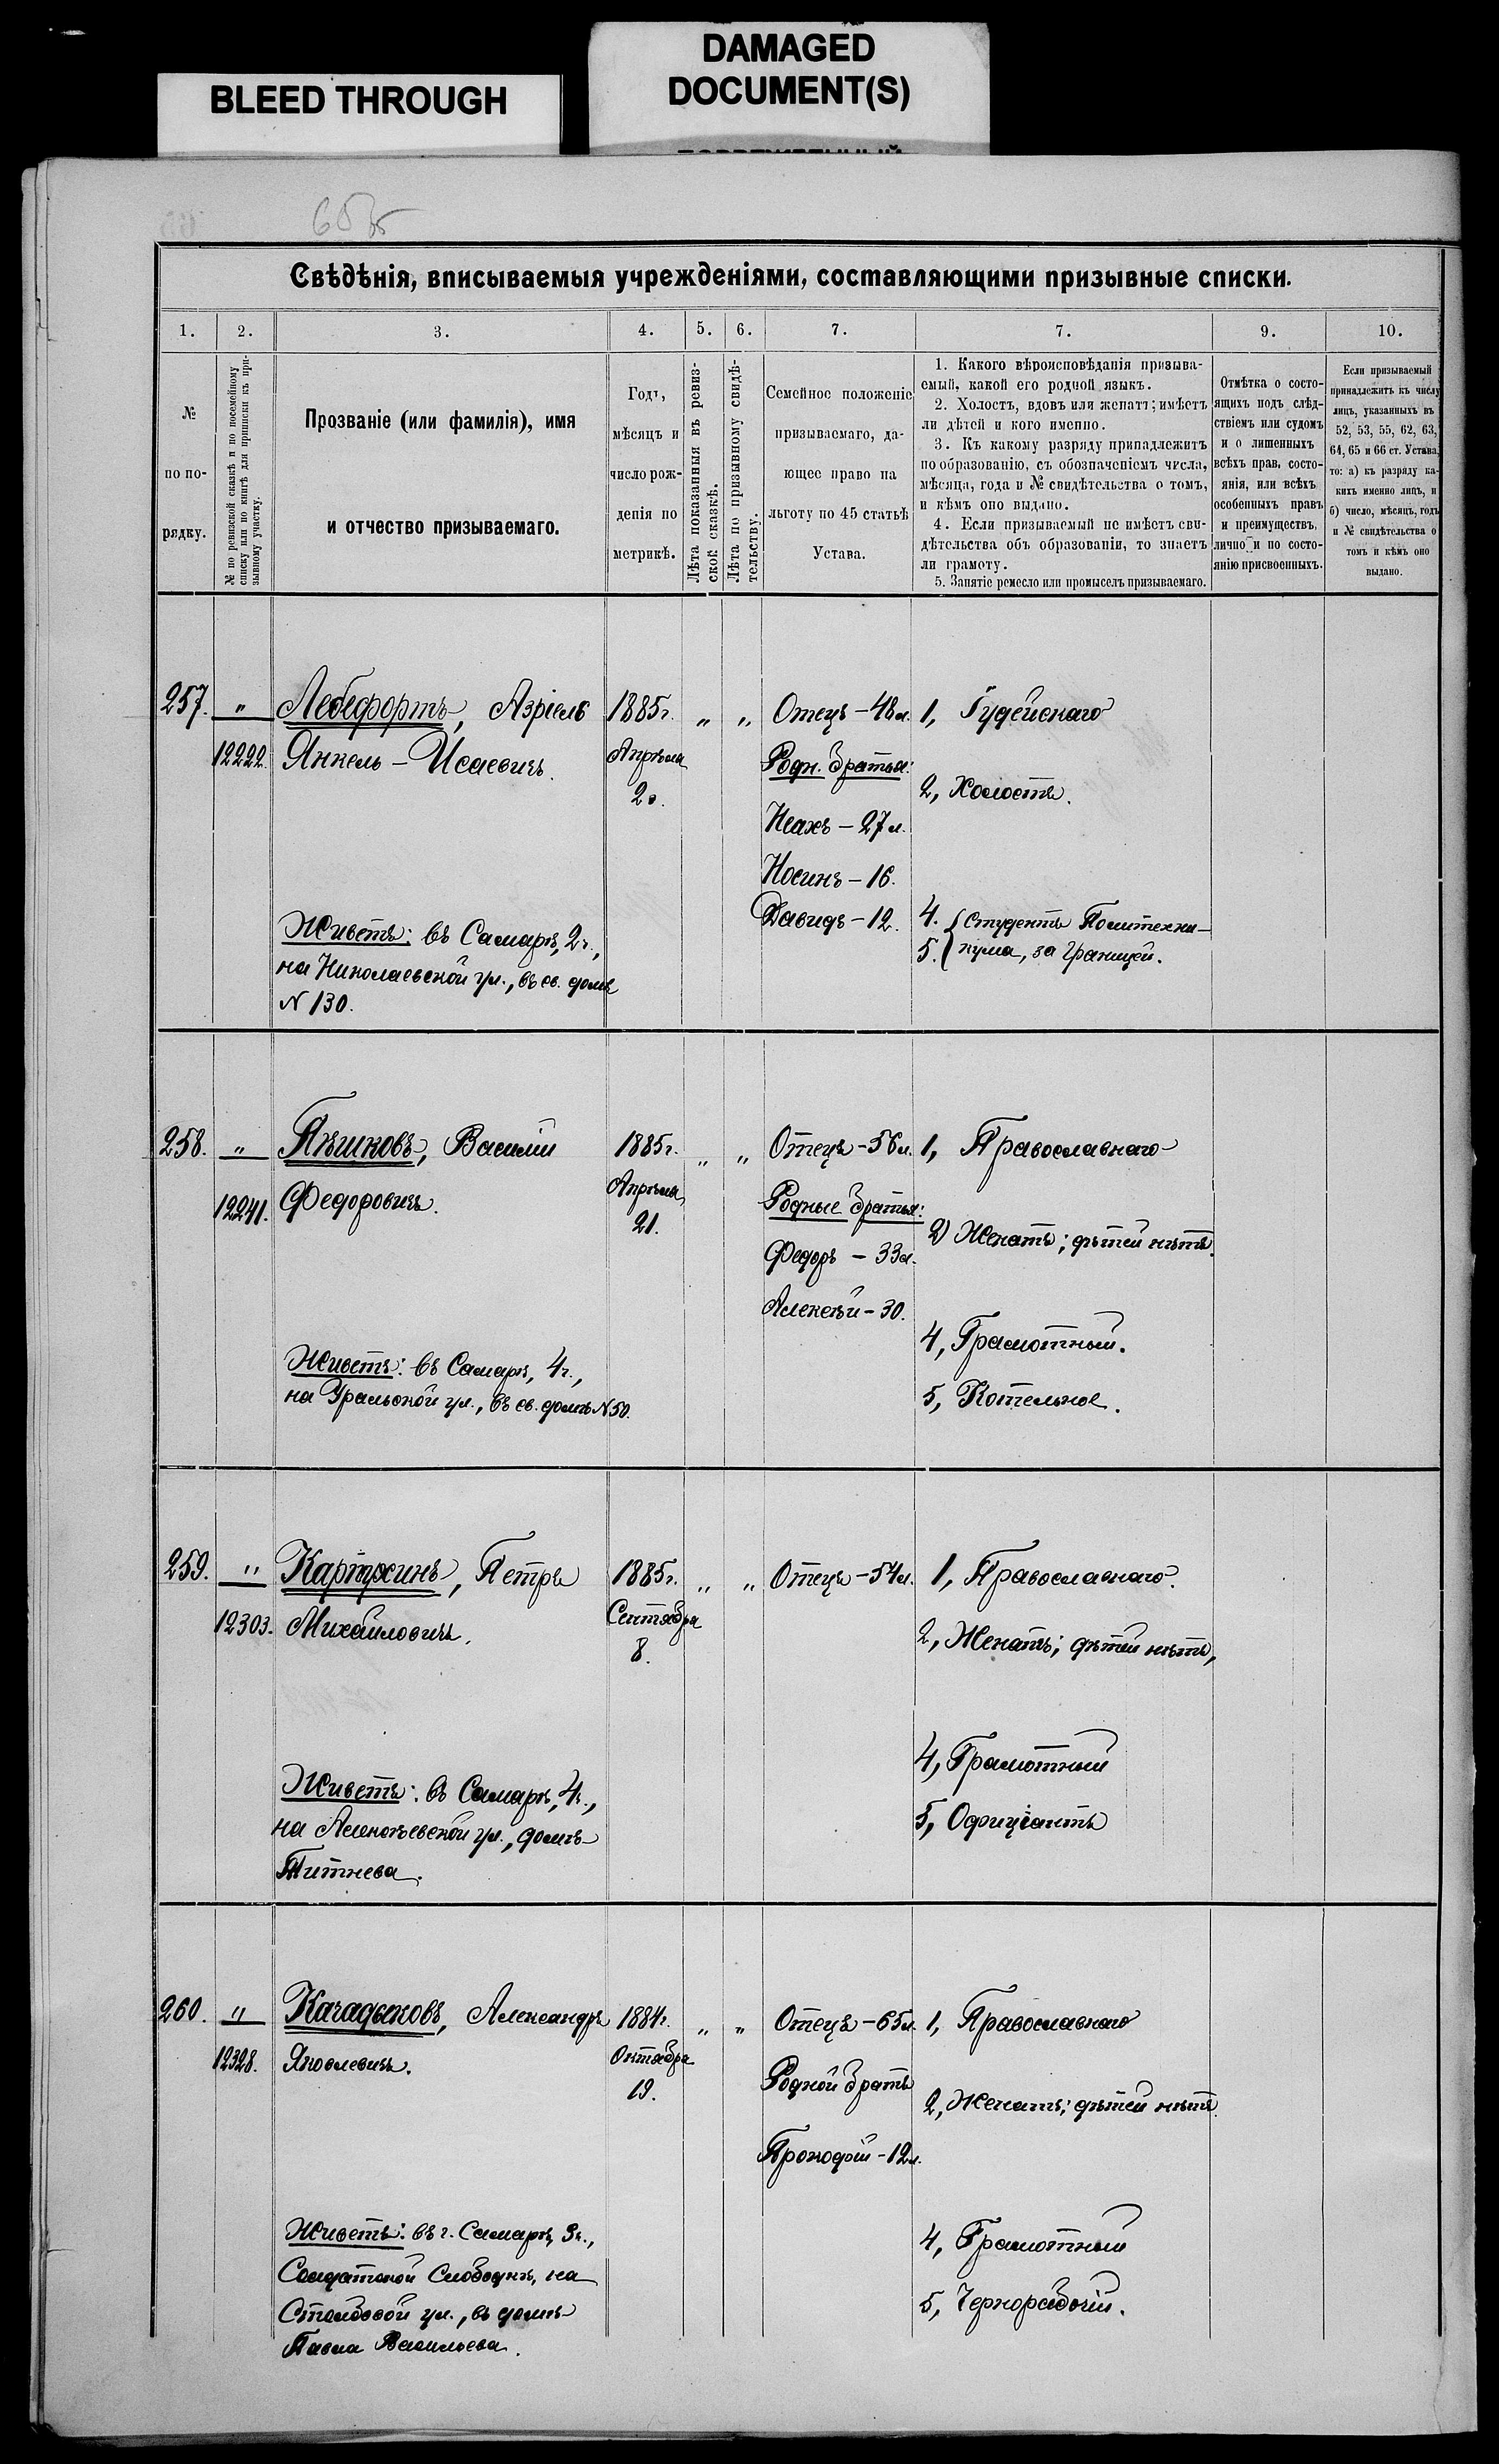 BLEED THROUGH
DAMAGED
DOCUMENT(S)
65
Свѣдѣнія, вписываемыя учрежденіями, составляющими призывные списки.
1.
2.
3.
4.
5.
6.
7.
7.
9.
10.
№
по по-
рядку.
№ по ревизской сказкѣ и по посемейному
списку или по книгѣ для приписки къ при-
зывному участку.
Прозваніе (или фамилія), имя
и отчество призываемаго.
Годъ,
мѣсяцъ и
число рож-
денія по
метрикѣ.
Лѣта показанныя въ ревиз-
ской сказкѣ.
Лѣта по призывному свидѣ-
тельству.
Семейное положеніе
призываемаго, да-
ющее право на
льготу по 45 статьѣ
Устава.
1. Какого вѣроисповѣданія призыва-
емый, какой его родной языкъ.
2. Холостъ, вдовъ или женатъ; имѣетъ
ли дѣтей и кого именно.
3. Къ какому разряду принадлежитъ
по образованію, съ обозначеніемъ числа,
мѣсяца, года и № свидѣтельства о томъ,
и кѣмъ оно выдано.
4. Если призываемый не имѣетъ сви-
дѣтельства объ образованіи, то знаетъ
ли грамоту.
5. Занятіе ремесло или промыселъ призываемаго.
Отмѣтка о состо-
ящихъ подъ слѣд-
ствіемъ или судомъ
и о лишенныхъ
всѣхъ прав, состо-
янія, или всѣхъ
особенныхъ правъ
и преимуществъ,
лично и по состо-
янію присвоенныхъ.
Если призываемый
принадлежитъ къ числу
лицъ, указанныхъ въ
52, 53, 55, 62, 63,
64, 65 и 66 ст. Устава,
то: а) къ разряду ка-
кихъ именно лицъ, и
б) число, мѣсяцъ, годъ
и № свидѣтельства о
томъ и кѣмъ оно
выдано.
257. " Лебефортъ, Азріель 1885г. " " Отецъ - 48л. 1, Іудейскаго
12222. Янкель - Исаевичъ. Апрѣля Родн. братья:
20. 2, Холостъ.
Исахъ - 27 л.
Носинъ - 16.
Давидъ - 12. 4. Студентъ Политехни-
Живетъ: въ Самарѣ, 2ч., 5. кума, за границей.
на Николаевской ул., въ св. домѣ
N 130.
258. " Пѣшковъ, Василій 1885г. " " Отецъ - 56л. 1, Православнаго
12241. Федоровичъ. Апрѣля Родные братья:
21. 2) Женатъ; дѣтей нѣтъ.
Федоръ - 33л.
Алексѣй - 30.
4, Грамотный.
Живетъ: въ Самарѣ, 4ч.,
на Уральской ул., въ св. домѣ N 50. 5, Котельное.
259. " Картухинъ, Петръ 1885г. " " Отецъ - 54л. 1, Православнаго.
12303. Михайловичъ. Сентября 2, Женатъ; дѣтей нѣтъ,
8.
4, Грамотный
Живетъ: въ Самарѣ, 4ч.,
на Алексѣевской ул., домъ 5, Официантъ
260. " Качадыковъ, Александръ 1884г. " " Отецъ - 65л. 1, Православнаго
12328. Яковлевичъ. Октября Родной братъ
19. 2, Женатъ; дѣтей нѣтъ.
Прокофій - 12л.
Живетъ: въ г. Самарѣ, 3ч., 4, Грамотный
Солдатской Слободкѣ, на
Столбовой ул., въ домѣ 5, Чернорабочій.
Павла Васильева.